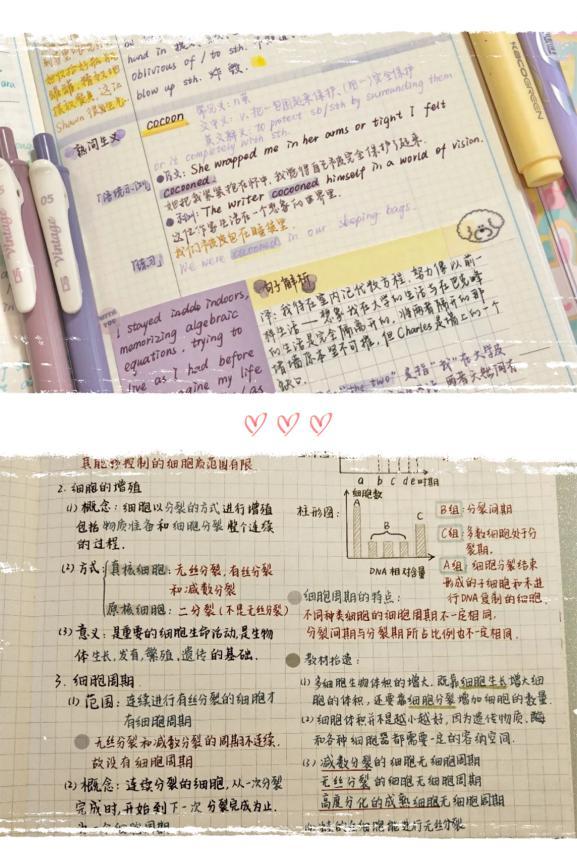 hand in
oblivious of / to sth.
blow up sth. 炸毁
Shawn
cocoon
熟词生义
常见义: n.茧
文中义: v. 把…包围起来保护、(用…)完全保护
英文解义: to protect sb/sth by surrounding them
or it completely with sth.
●原文: She wrapped me in her arms so tight I felt
cocooned.
●例词: The writer cocooned himself in a world of vision.
这位作家生活在一个想象的世界里.
「练习」
我们被包在睡袋里.
We were cocooned in our sleeping bags.
句子解析
I stayed indoors,
memorizing algebraic
equations, trying to
live as I had before
imagine my life
译: 我待在室内记代数方程,努力像以前一
样生活
的生活是完全隔离开的,将两者隔开的那
堵墙原本坚不可摧,但Charles是墙上的一个
缺口.
"the two" 是指"我"在大学及
Vintage
05
Vintage
KACO GREEN
其能够控制的细胞质范围有限
2. 细胞的增殖
(1) 概念: 细胞以分裂的方式进行增殖
包括物质准备和细胞分裂整个连续
的过程.
(2) 方式: 真核细胞: 无丝分裂,有丝分裂
和减数分裂
原核细胞: 二分裂(不是无丝分裂)
(3) 意义: 是重要的细胞生命活动,是生物
体生长,发育,繁殖,遗传的基础.
3. 细胞周期
(1) 范围: 连续进行有丝分裂的细胞才
有细胞周期
无丝分裂和减数分裂的周期不连续.
故没有细胞周期
(2) 概念: 连续分裂的细胞,从一次分裂
完成时,开始到下一次分裂完成为止.
a b c d e 时期
柱形图:
细胞数
A
B
C
DNA 相对含量
B组: 分裂间期
C组: 多数细胞处于分
裂期.
A组: 细胞分裂结束
形成的子细胞和未进
行DNA复制的细胞.
细胞周期的特点:
不同种类细胞的细胞周期不一定相同.
分裂间期与分裂期所占比例也不一定相同.
教材拾遗:
(1) 多细胞生物体积的增大,既靠细胞生长增大细
胞的体积,还要靠细胞分裂增加细胞的数量.
(2) 细胞体积并不是越小越好,因为遗传物质、酶
和各种细胞器都需要一定的容纳空间.
(3) 减数分裂的细胞无细胞周期
无丝分裂的细胞无细胞周期
高度分化的成熟细胞无细胞周期